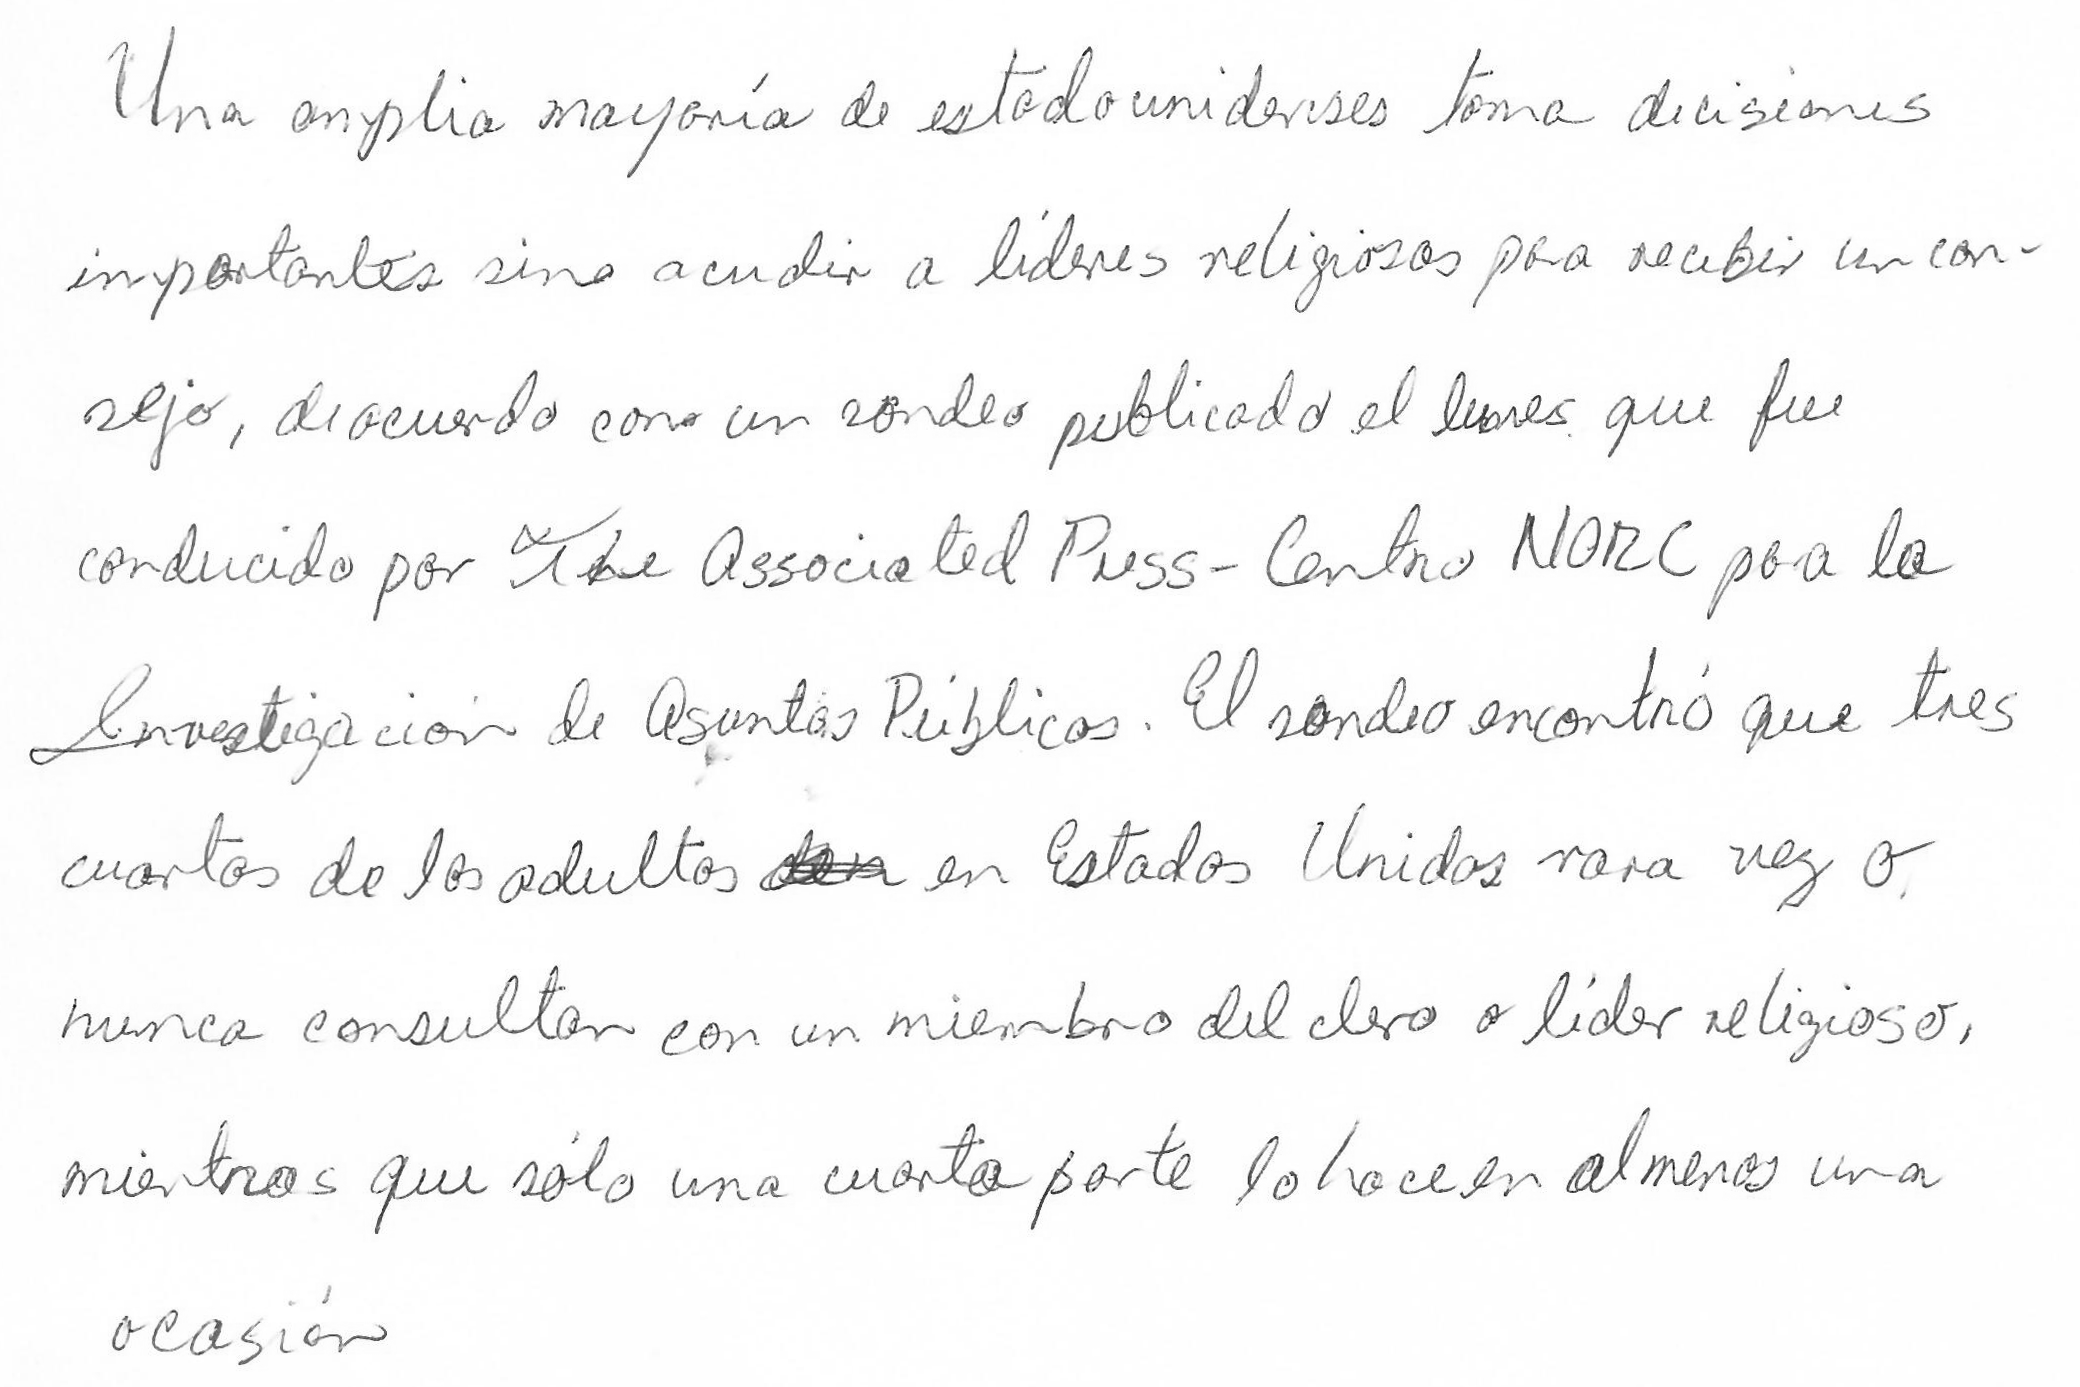 Una amplia mayoría de estadounidenses toma decisiones
importantes sino acudir a líderes religiosos para recibir un con-
sejo, de acuerdo con un sondeo publicado el lunes que fue
conducido por The Associated Press-Centro NORC para la
Investigación de Asuntos Públicos. El sondeo encontró que tres
cuartos de los adultos en Estados Unidos rara vez o
nunca consultan con un miembro del clero o líder religioso,
mientras que sólo una cuarta parte lo haceen al menos una
ocasión